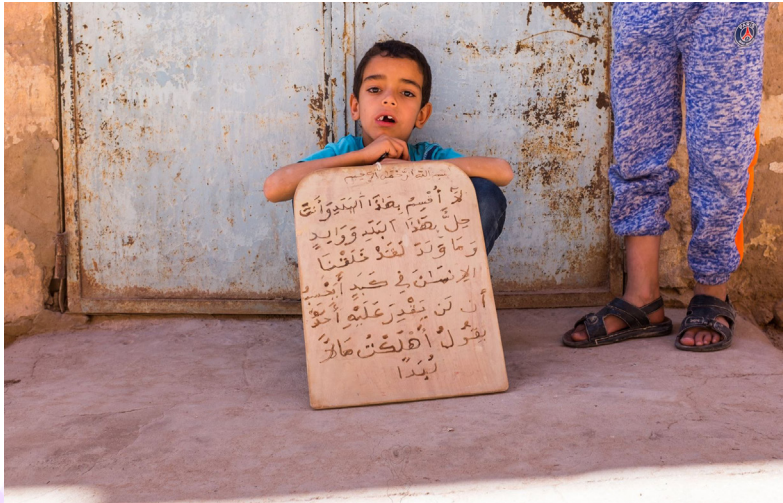 بسم الله الرحمن الرحيم
لَآ أُقْسِمُ بِهَذَا الْبَلَدِ وَأَنتَ
حِلٌّ بِهَذَا الْبَلَدِ وَوَالِدٍ
وَمَا وَلَدَ لَقَدْ خَلَقْنَا
الإِنسَانَ فِي كَبَدٍ أَيَحْسِبُ
أَن لَنْ يَقْدِرَ عَلَيْهِ أَحَدٌ
يَقُولُ أَهْلَكْتُ مَالًا
لُبَدًا